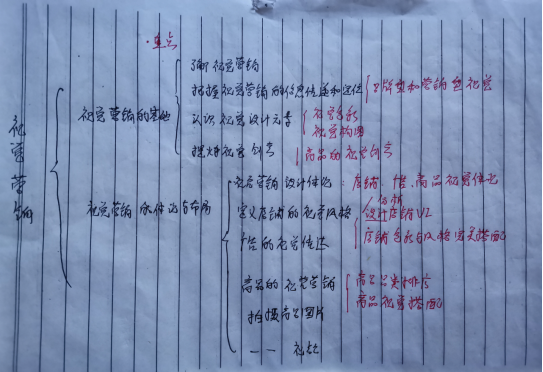 ·重点
视觉营销
视觉营销的基础
了解视觉营销
把握视觉营销的信息传递和定位
品牌型和营销型视觉
认识视觉设计元素
视觉色彩
视觉构图
提炼视觉创意
商品的视觉创意
视觉营销的体验与布局
视觉营销设计体验：店铺、商品视觉体验
定义店铺的视觉风格
分析
设计店铺VI
店铺色彩与风格完美搭配
的视觉
商品的视觉营销
商品品类排序
商品视觉搭配
拍摄商品图片
一一 视频